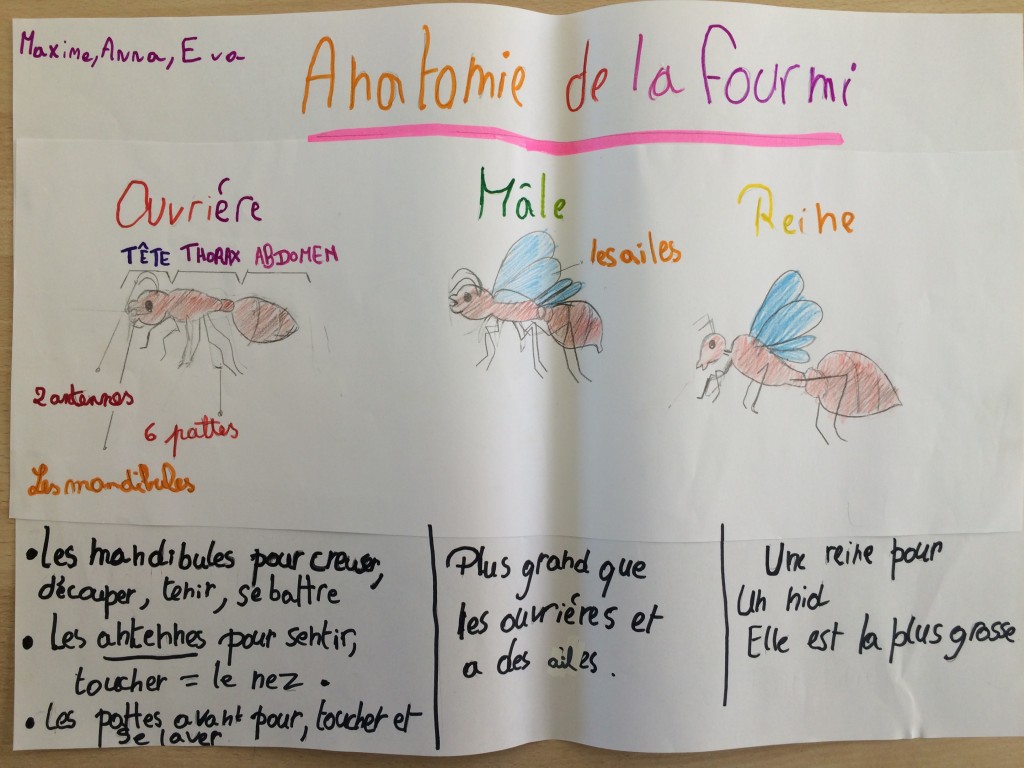 Maxime, Anna, Eva
Anatomie de la fourmi
Ouvriére
TÊTE THORAX ABDOMEN
2 antennes
6 pattes
Les mandibules
Mâle
les ailes
Reine
• Les mandibules pour creuser,
découper, tenir, se battre
• Les antennes pour sentir,
toucher = le nez.
• Les pattes avant pour, toucher et
se laver
Plus grand que
les ouvriéres et
a des ailes.
Une reine pour
un nid
Elle est la plus grosse